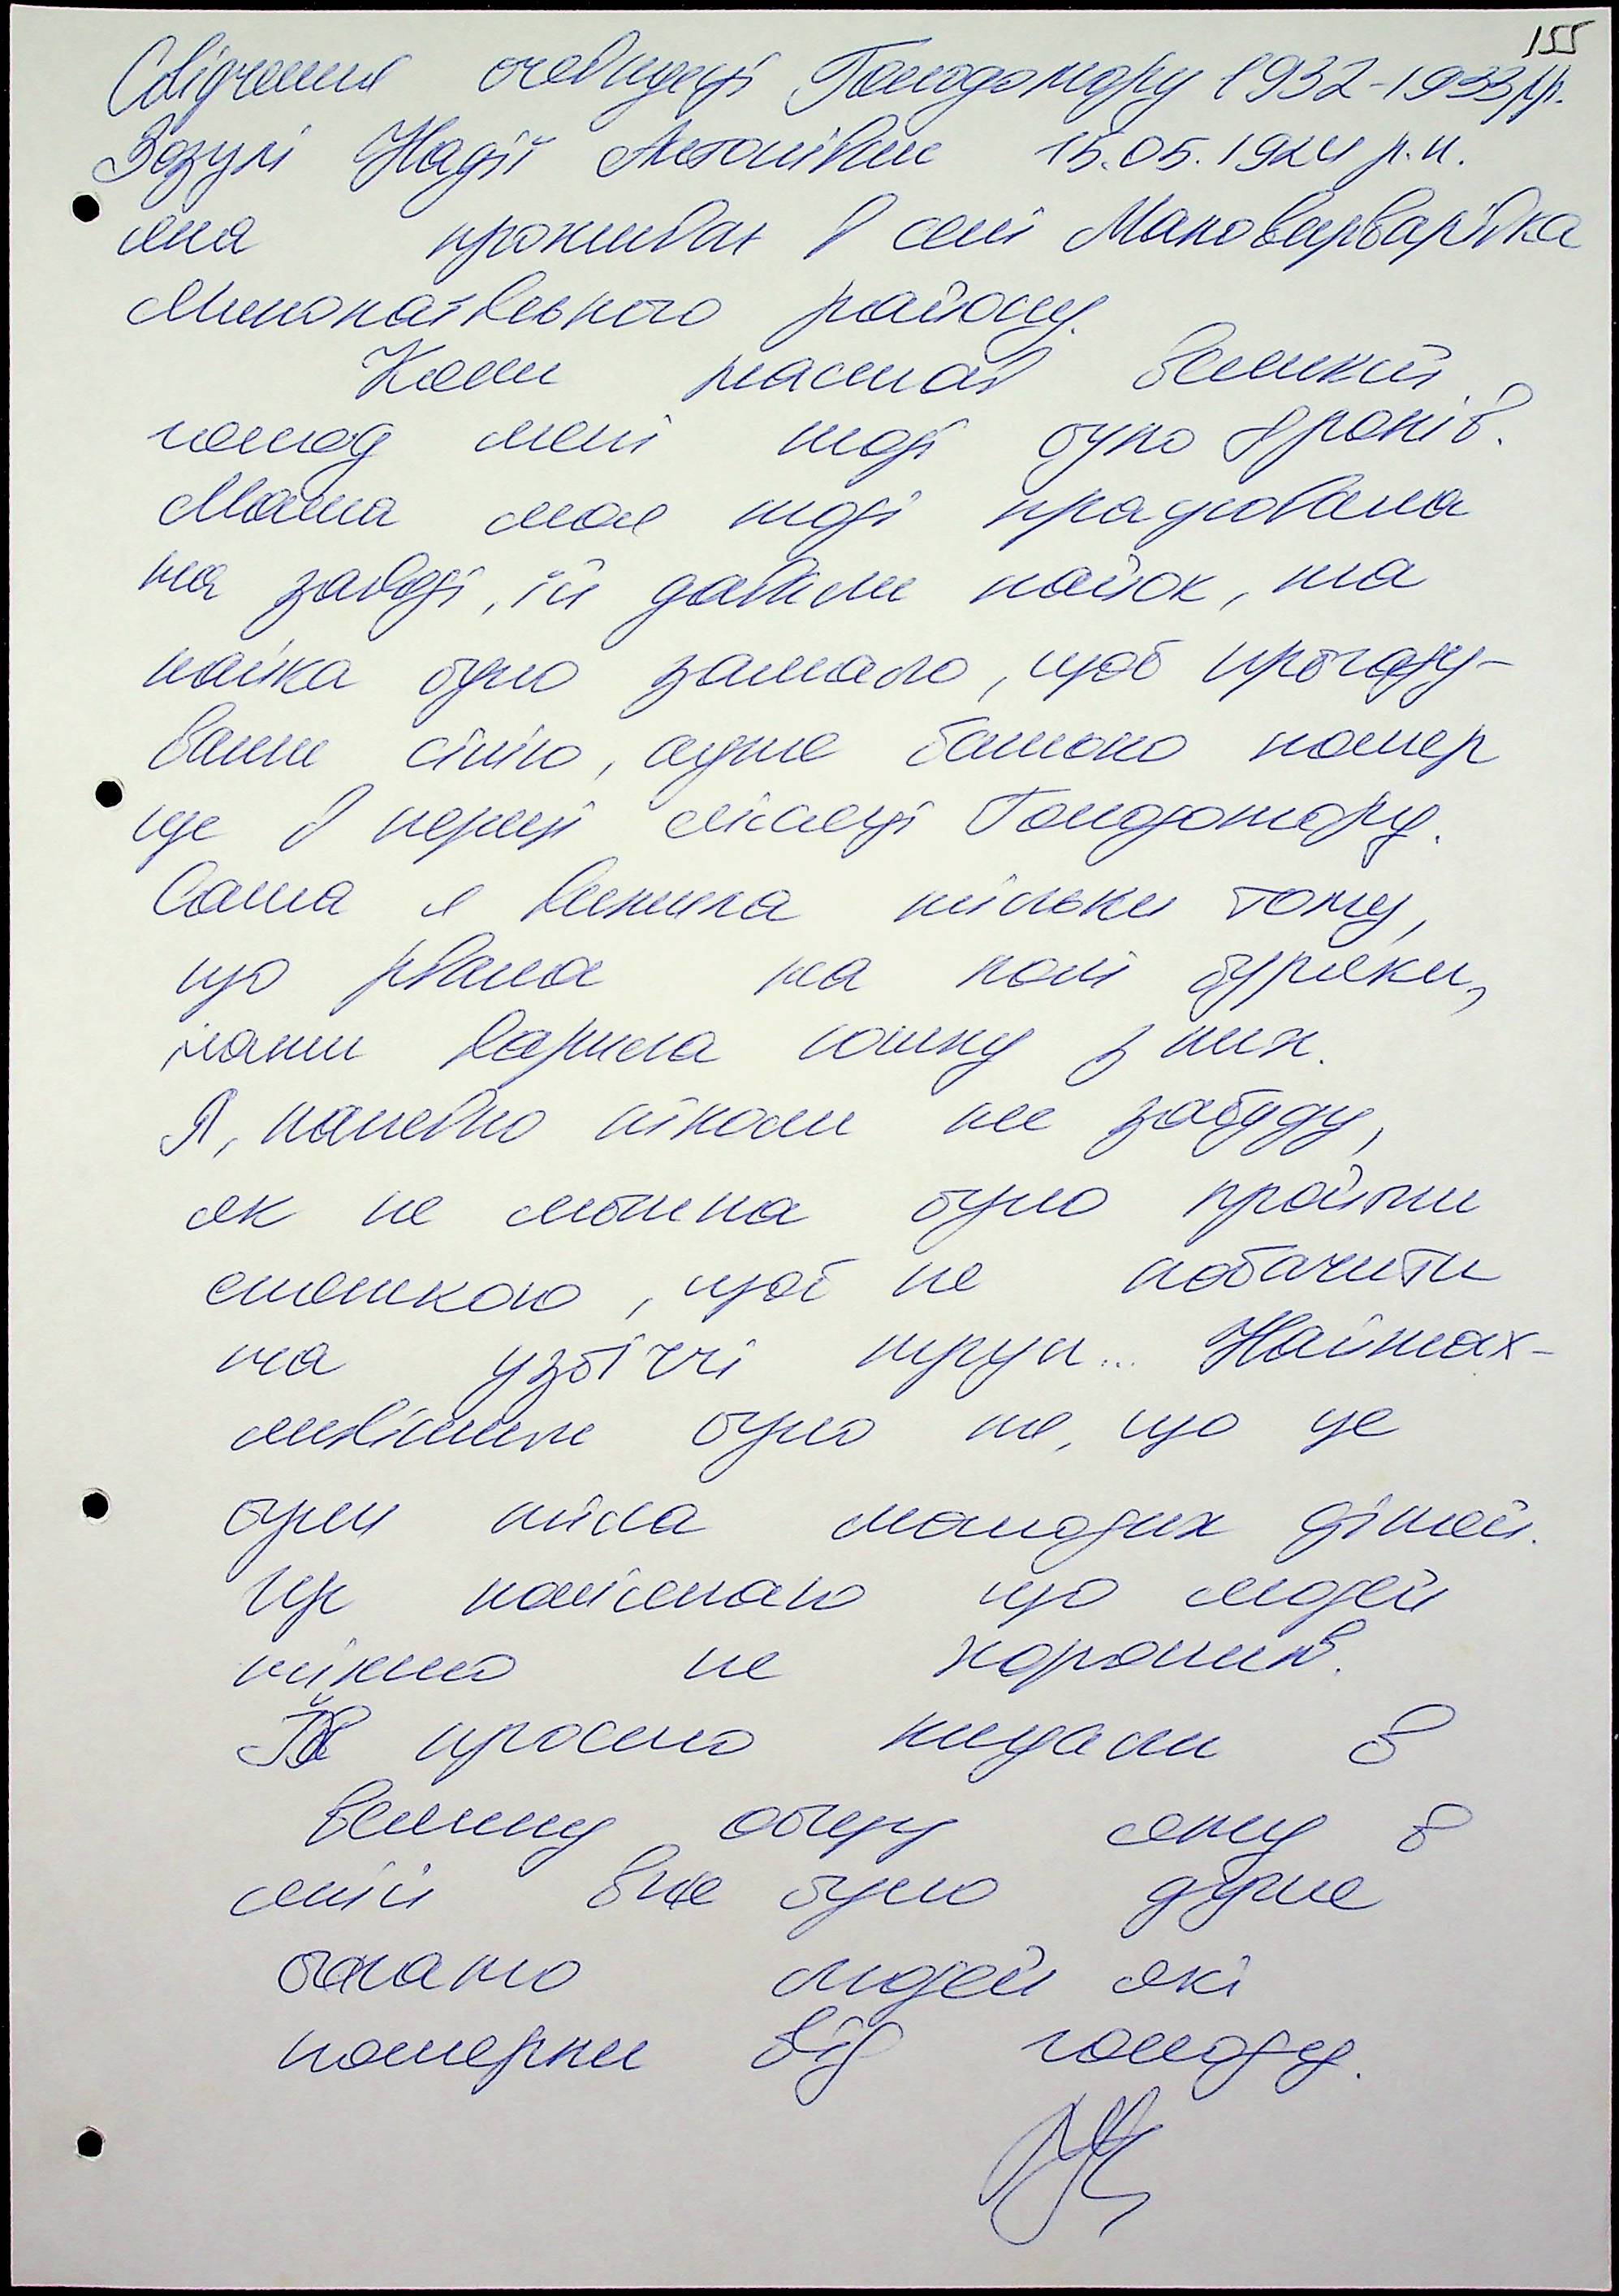 155
Свідчення очевидця Голодомору 1932-1933рр.
Зозулі Надії Антонівни 15.05.1924 р.н.
яка проживає в селі Маловарварівка
Миколаївського району.
Коли настав великий
голод мені тоді було 8 років.
Мати моя тоді працювала
на заводі, їй давали пайок, та
пайка було замало, щоб прогоду-
вати сім'ю, адже батько помер
ще в перші місяці Голодомору.
Сама я вижила тільки тому,
що рвала на полі буряки,
мати варила юшку з них.
Я, напевно ніколи не забуду,
як не можна було пройти
стежкою, щоб не побачити
на узбіччі труп... Найжах-
ливішим було те, що це
були тіла молодих дітей.
Ще пам'ятаю що людей
ніхто не хоронив.
Їх просто кидали в
велику общу яму в
якій вже було дуже
багато людей які
померли від голоду.